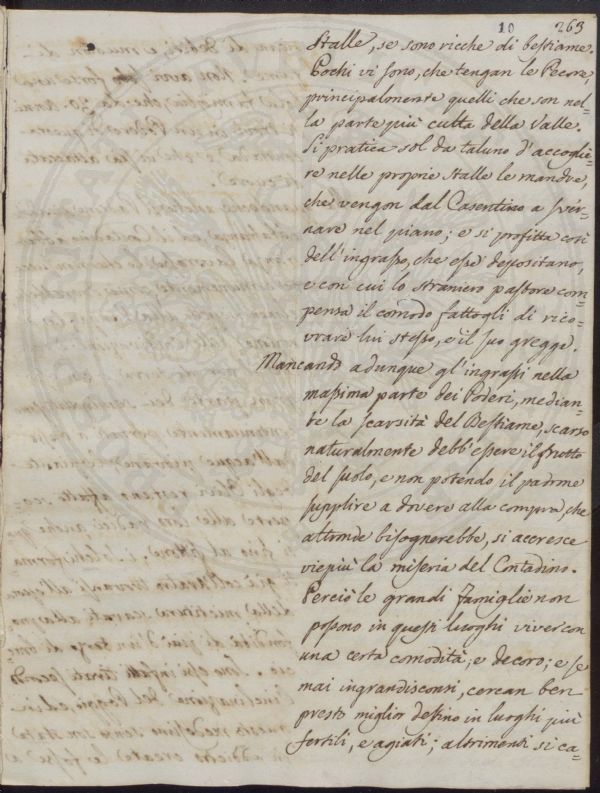 10 263
Stalle, se sono ricche di bestiame.
Pochi vi sono, che tengan le Pecore,
principalmente quelli che son nel-
la parte più culta della Valle.
Si pratica sol da taluno d'accoglie-
re nelle proprie stalle le mandre,
che vengon dal Casentino a sver-
nare nel piano; e si profitta così
dell'ingrasso, che esse depositano,
e con cui lo straniero pastore com-
pensa il comodo fattogli di rico-
vrare lui stesso, e il suo gregge.
Mancando adunque gl'ingrassi nella
massima parte dei Poderi, median-
te la scarsità del Bestiame, scarso
naturalmente debb'essere il frutto
del suolo, e non potendo il padrone
supplire a dovere alla compra, che
altronde bisognerebbe, si accresce
viepiù la miseria del Contadino.
Perciò le grandi famiglie non
possono in questi luoghi viver con
una certa comodità, e decoro; e se
mai ingrandisconsi, cercan ben
presto miglior destino in luoghi più
fertili, e agiati; altrimenti si ca-